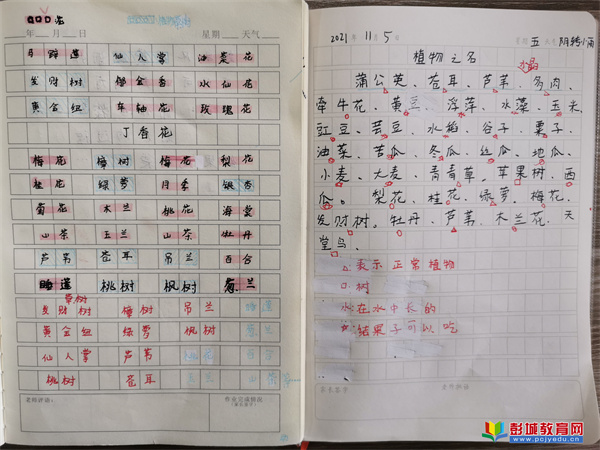 年 月 日 星期 天气
仙人掌 油菜花
发财树 绣金香 水仙花
黄金纽 车轴花 玫瑰花
丁香花
梅花 樟树 桃花 梨花
桂花 绿萝 月季 银杏
菊花 木兰 桃花 海棠
山茶 玉兰 山茶 牡丹
芦苇 苍耳 吊兰 百合
睡莲 桃树 枫树 兰
发财树 樟树 吊兰 睡莲
黄金纽 绿萝 枫树
仙人掌 芦苇
桃树 苍耳
2021年11月5日 星期五 天气阴转小雨
植物之名
蒲公英、苍耳、芦苇、多肉、
牵牛花、黄豆、浮萍、水藻、玉米、
豇豆、芸豆、水稻、谷子、粟子、
油菜、苦瓜、冬瓜、丝瓜、地瓜、
小麦、大麦、青青草、苹果树、西
瓜。梨花、桂花、绿萝、梅花、
发财树。牡丹、芦苇、木兰花、天
堂鸟、
△:表示正常植物
□:树
水:在水中长的
结果子可以吃
彭城教育网
www.pcjyedu.cn